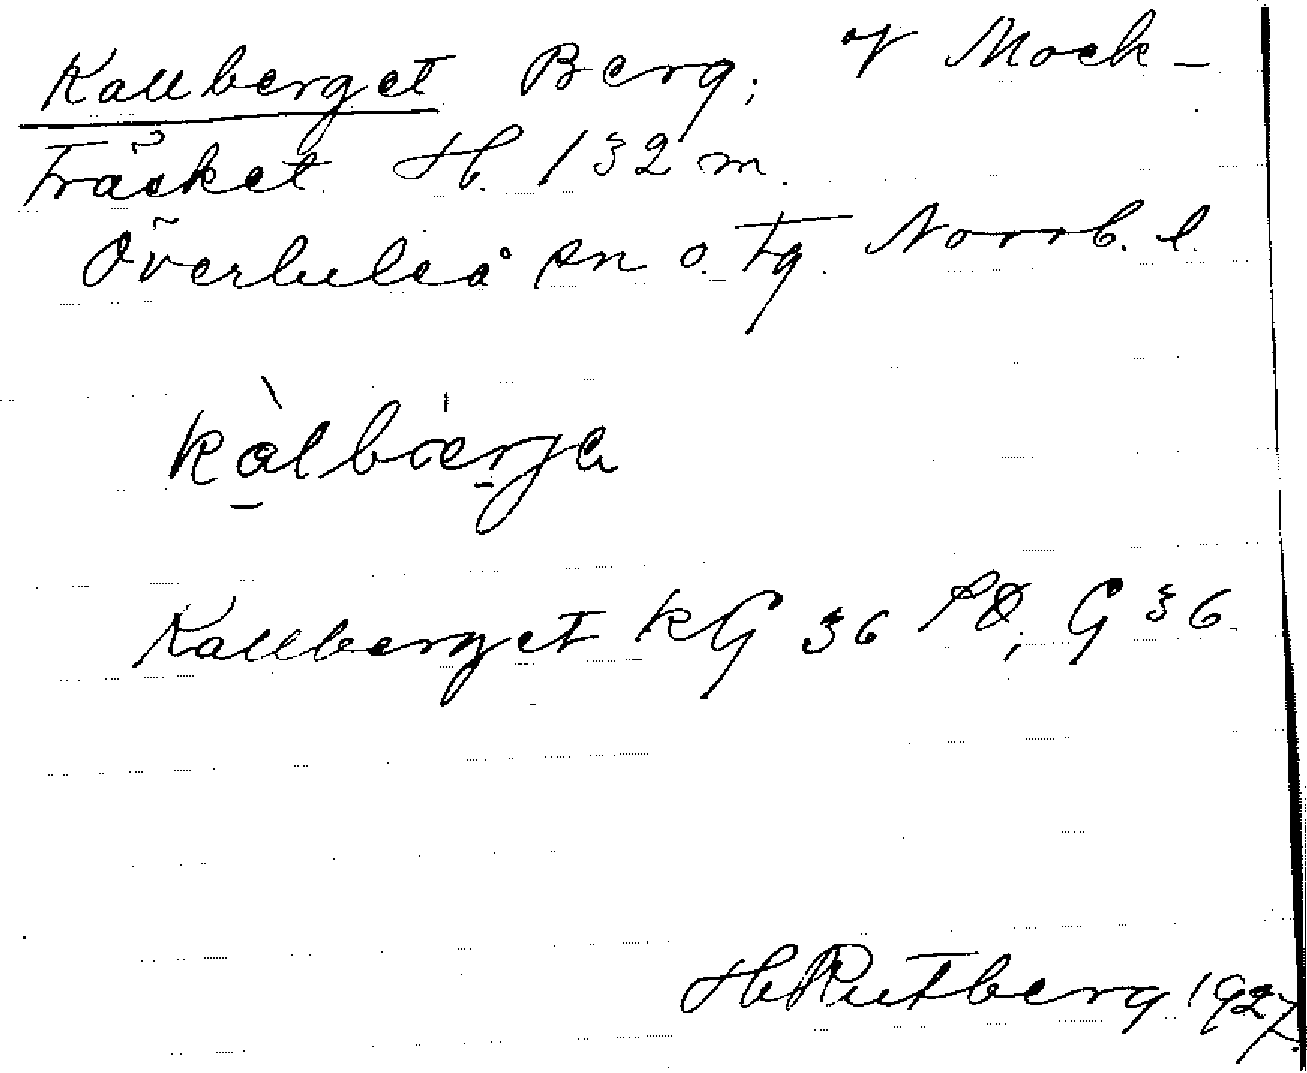 Kallberget Berg; v Mock-
träsket H. 132 m.
Överluleå sn o. tg. Norrb. l.
kàlbærja
Kallberget kG 36 SO; G 36
H Rutberg 1927